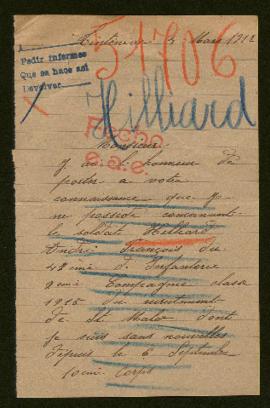 Tinténiac 5 Mars 1912
51706
Pedir informes
Que se hace así
Devolver
Hilliard
Fecho
e.a.e.
Monsieur
J ai l honneur de
porter a votre
connaissance que
je possède concernant
le soldat Hilliard
André François du
48 eme d. Infanterie
8 eme Compagnie classe
1915 du recrutement
de St Malo dont
je suis sans nouvelles
depuis le 6 Septembre
10 eme Corps